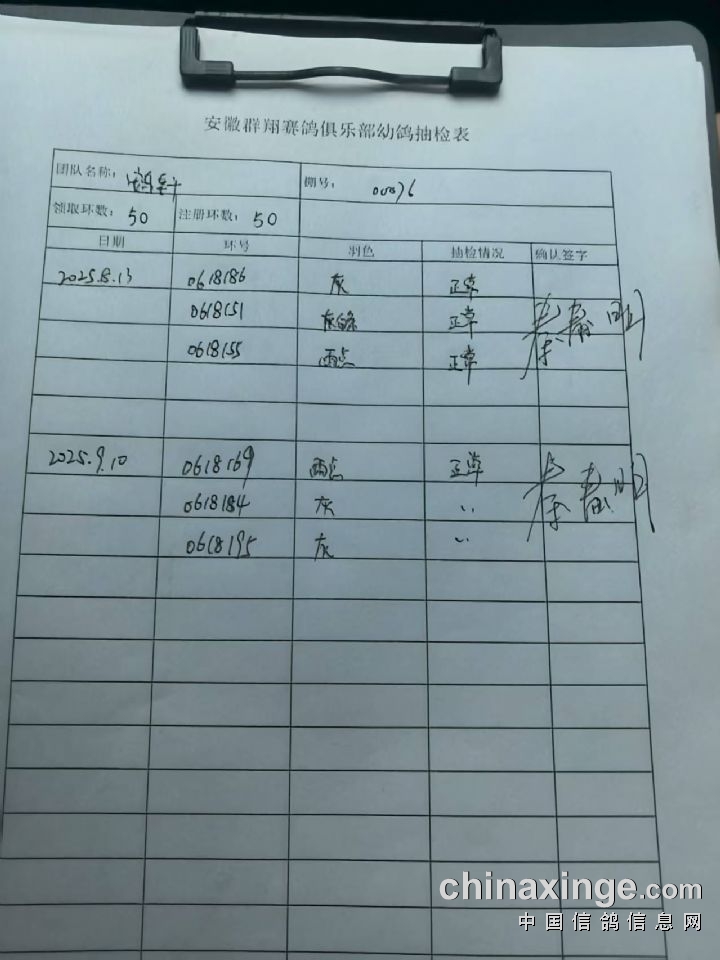 安徽群翔赛鸽俱乐部幼鸽抽检表
团队名称： 棚号： 00076
领取环数：50 注册环数：50
日期 环号 羽色 抽检情况 确认签字
2025.8.13 0618186 灰 正常
0618151 灰 正常
0618155 雨点 正常
2025.9.10 0618169 雨点 正常
0618184 灰 〃
0618195 灰 〃
chinaxinge.com
中国信鸽信息网